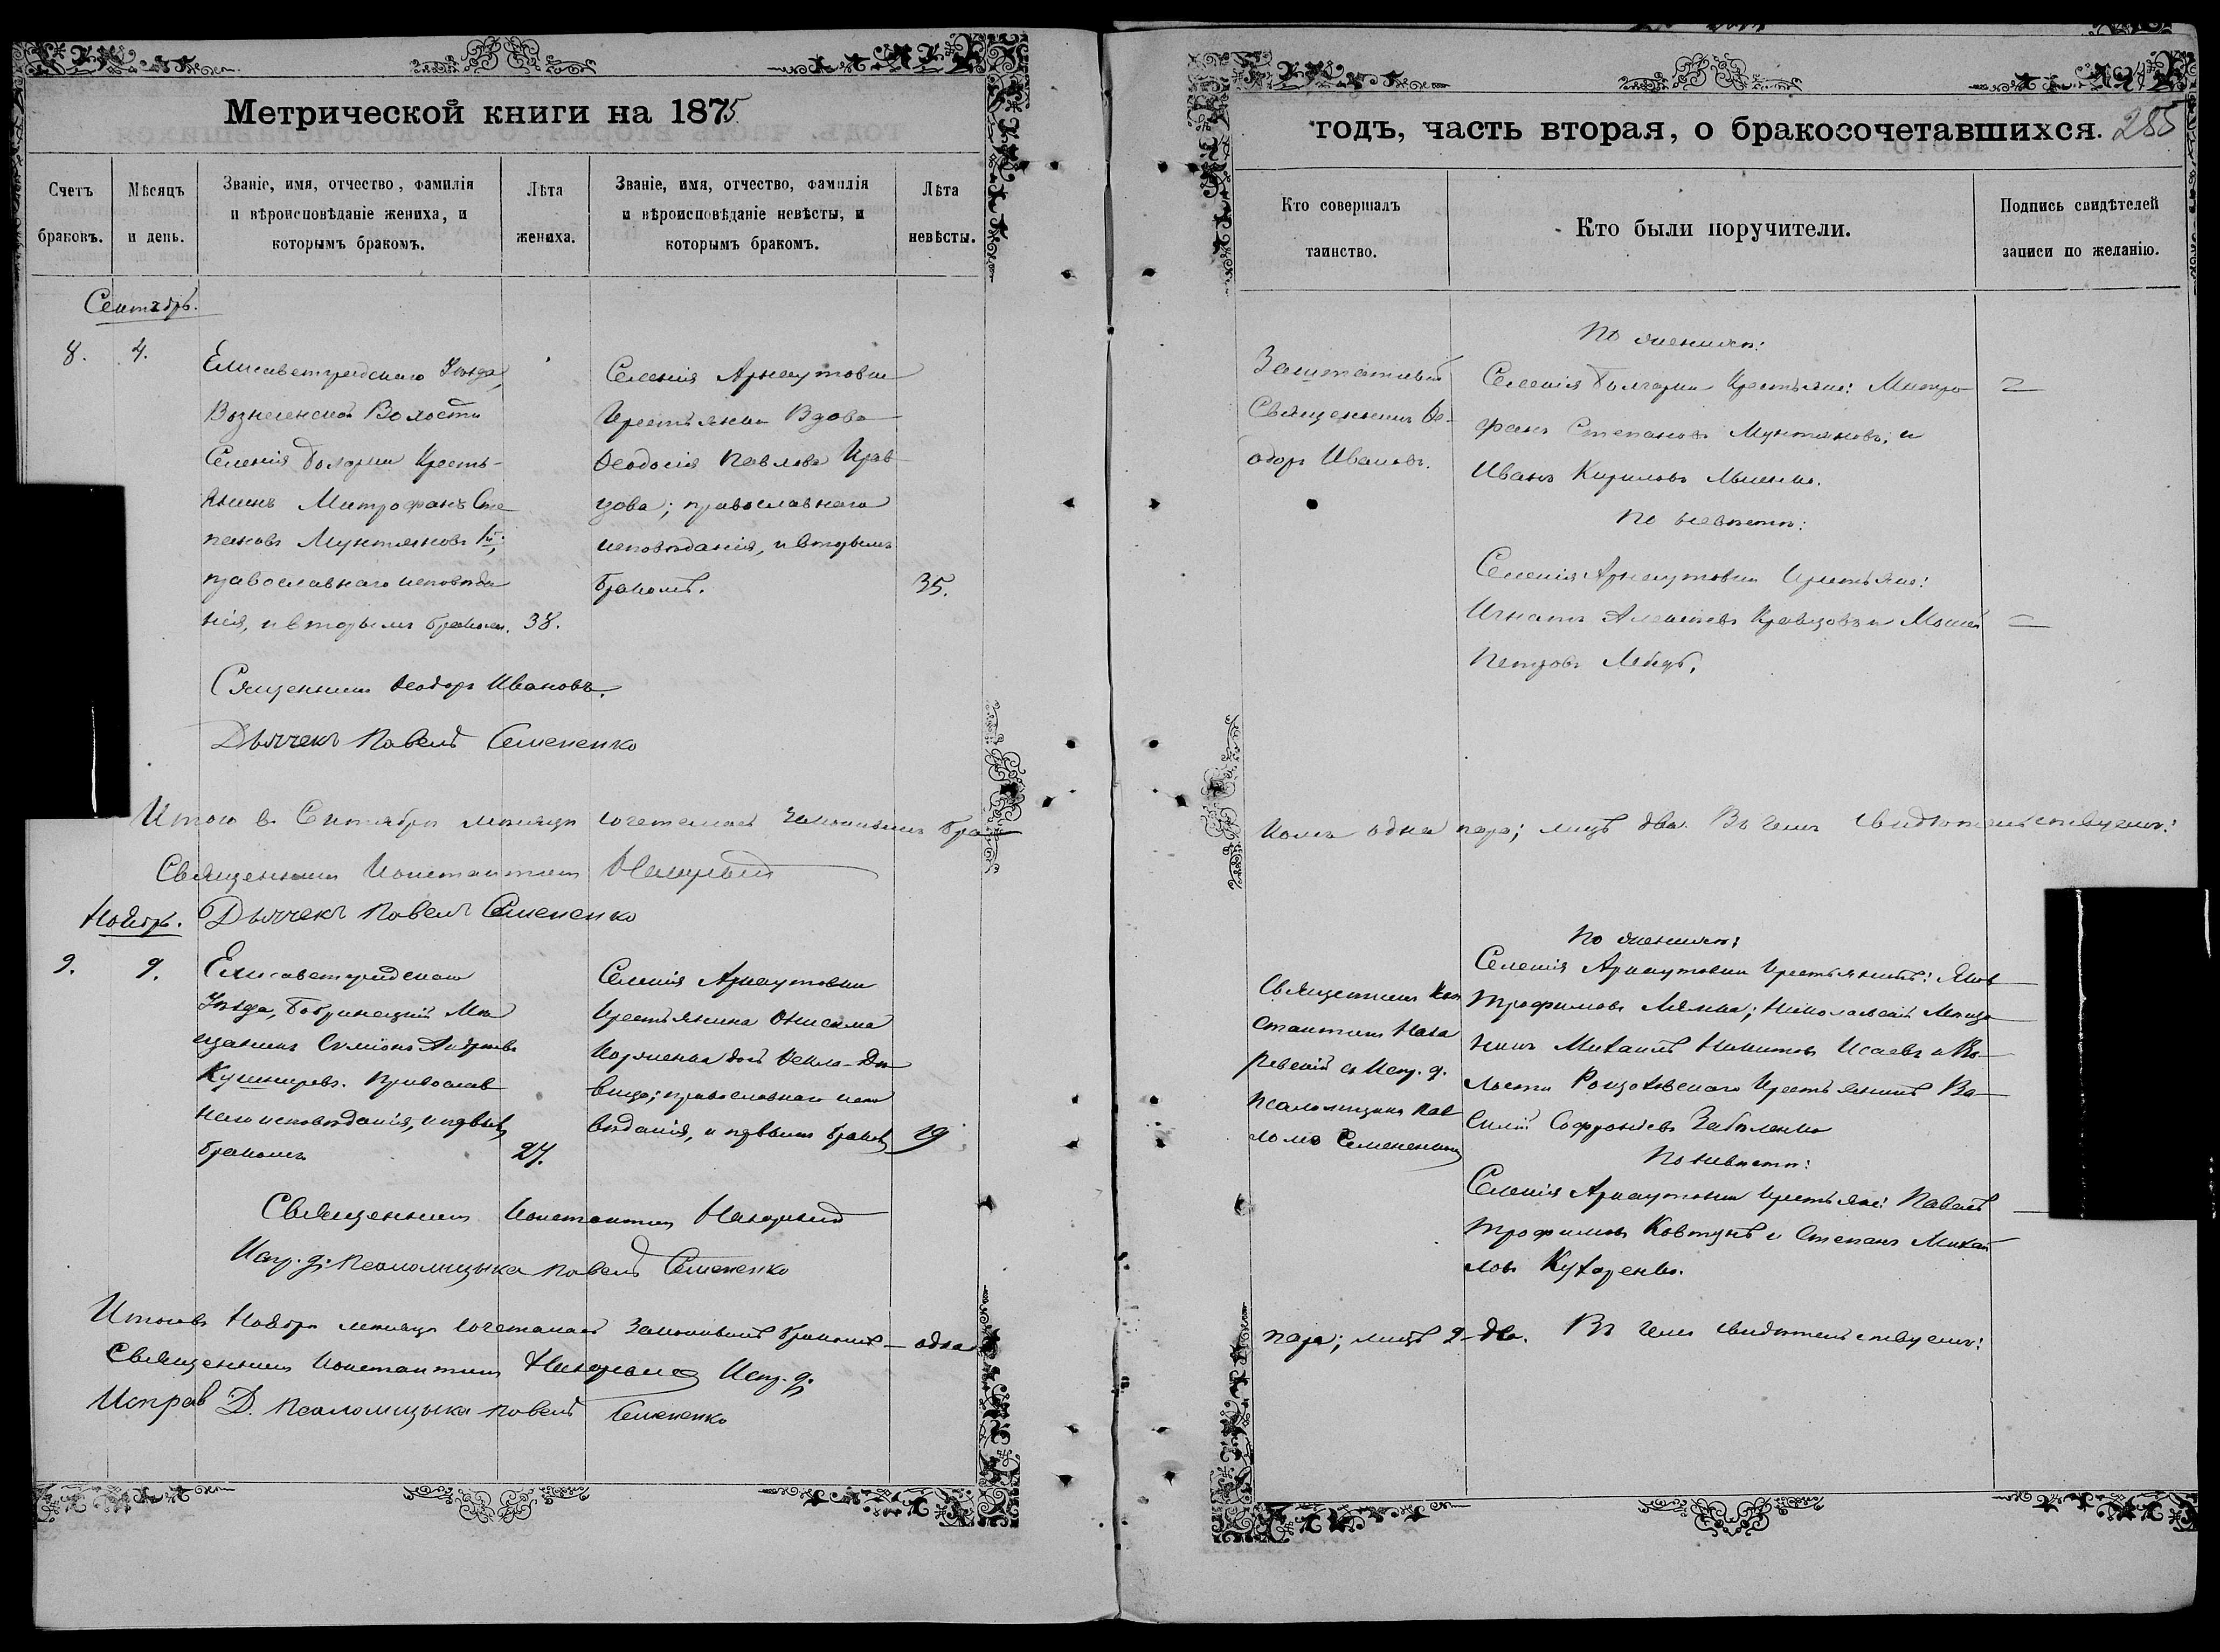 Метрической книги на 1875
Счетъ браковъ.
Мѣсяцъ и день.
Званіе, имя, отчество, фамилія
и вѣроисповѣданіе жениха, и
которымъ бракомъ.
Лѣта
жениха.
Званіе, имя, отчество, фамилія
и вѣроисповѣданіе невѣсты, и
которымъ бракомъ.
Лѣта
невѣсты.
Сентябрь.
8.
4.
Елисаветградскаго Уѣзда,
Вознесенской Волости
Селенія Болгарки Кресть-
янинъ Митрофанъ Сте
пановъ Мунтяновъ
православнаго исповѣда
нія, и вторымъ бракомъ. 38.
Селенія Арнаутовки
Крестьянка Вдова
Ѳеодосія Павлова Крав
цова; православнаго
исповѣданія, и вторымъ
бракомъ. 35.
Священникъ Ѳеодоръ Ивановъ.
Дьячекъ Павелъ Семененко
Итого въ Сентябрѣ мѣсяцѣ сочеталась законнымъ бра
Священникъ Константинъ
Ноябрь.
Дьячекъ Павелъ Семененко
9.
9.
Елисаветградскаго
Уѣзда, Бобринецкій Мѣ
щанинъ Симіонъ Андреевъ
Кушниревъ. Православ
наго исповѣданія, и первымъ
бракомъ 27.
Селенія Арнаутовки
Крестьянина Онисима
дочь Ѳекла-Дѣ
вица; православнаго испо
вѣданія, и первымъ бракомъ 19
Священникъ Константинъ
Испр. д. Псаломщика Павелъ Семененко
Итого въ Ноябрѣ мѣсяцѣ сочеталась законнымъ бракомъ - одна
Священникъ Константинъ Испр. д.
Исправ Д. Псаломщика Павелъ Семененко
годъ, часть вторая, о бракосочетавшихся. 285
Кто совершалъ
таинство.
Кто были поручители.
Подпись свидѣтелей
записи по желанію.
Заштатный
Священникъ Ѳе-
одоръ Ивановъ.
По женихѣ:
Селенія Болгарки Крестьяне: Митро-
фанъ Степановъ Мунтяновъ; и
Иванъ Кириловъ
По невѣстѣ:
Селенія Арнаутовки Крестьяне:
Игнатъ Алексѣевъ Кравцовъ и Моисей
Петровъ Лебедь.
комъ одна пара; лицъ два. Въ чемъ свидѣтельствуемъ:
Священникъ Кон
стантинъ
съ Испр. д.
псаломщика Пав
ломъ Семененкомъ
По женихѣ:
Селенія Арнаутовки Крестьянинъ: Яковъ
Трофимовъ; Николаевскій Мѣща
нинъ Михаилъ Никитовъ Исаевъ и Во-
лости Крестьянинъ Ва-
силій Софроніевъ
По невѣстѣ:
Селенія Арнаутовки Крестьяне: Павелъ
Трофимовъ Ковтунъ и Степанъ Михай
ловъ Кухаренко.
пара; лицъ 2- два. Въ чемъ свидѣтельствуемъ: